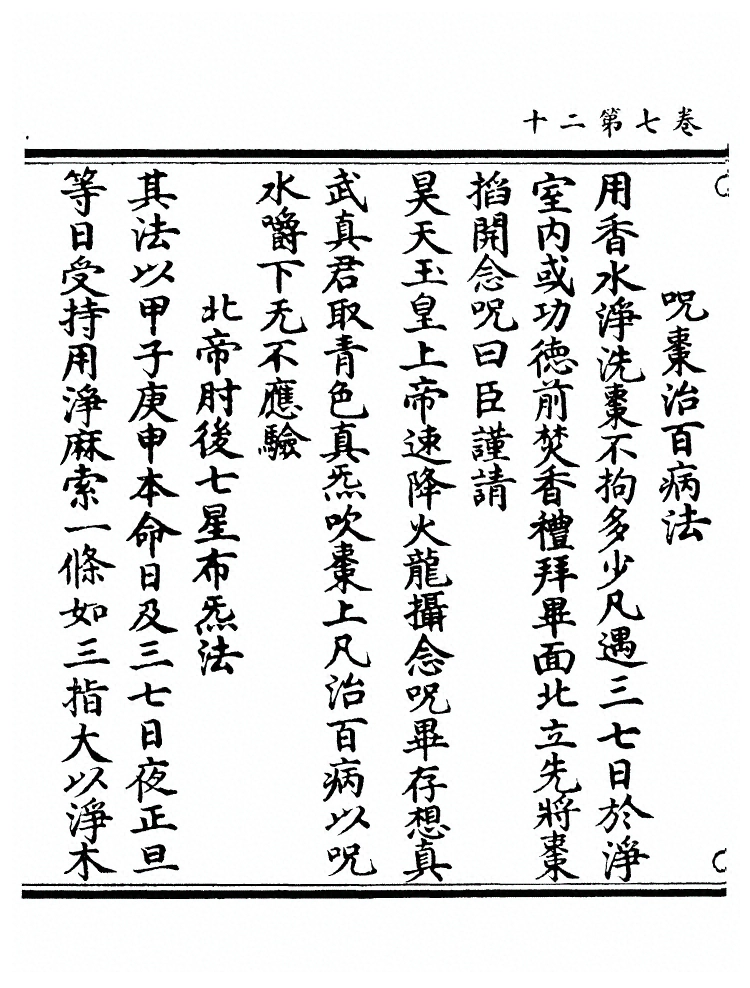 卷七第二十
呪棗治百病法
用香水淨洗棗不拘多少凡遇三七日於淨
室内或功德前焚香禮拜畢面北立先將棗
掐開念呪曰臣謹請
昊天玉皇上帝速降火龍攝念呪畢存想真
武真君取青色真炁吹棗上凡治百病以呪
水嚼下无不應驗
北帝肘後七星布炁法
其法以甲子庚申本命日及三七日夜正旦
等日受持用淨麻索一條如三指大以淨木